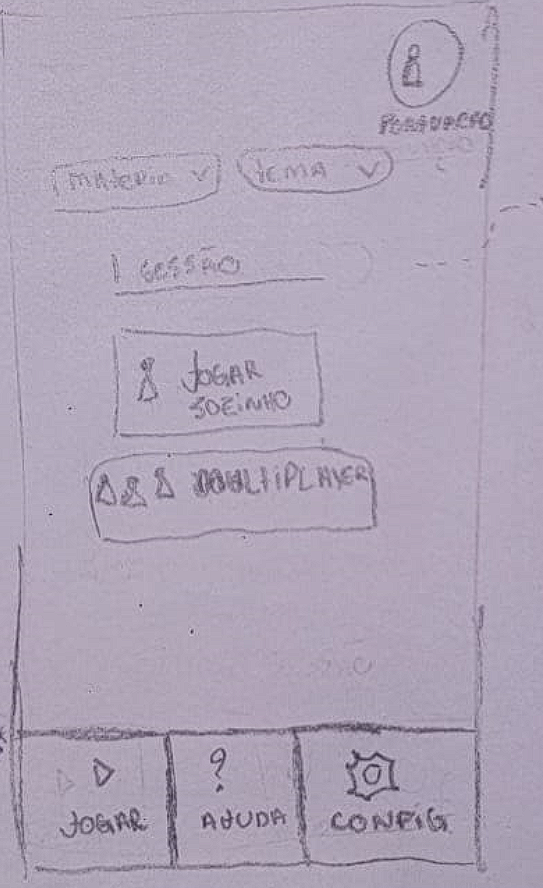 MATERIA
TEMA
SESSÃO
JOGAR
SOZINHO
MULTIPLAYER
?
JOGAR
AJUDA
CONFIG